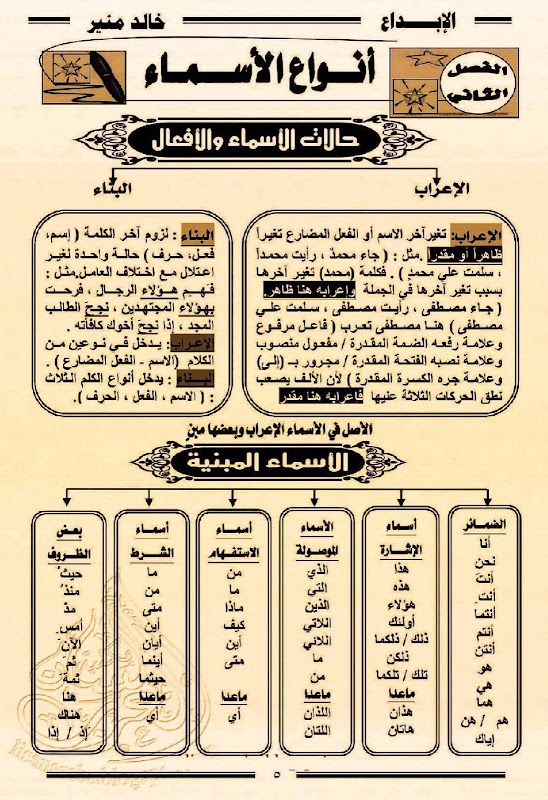 الإبــداع
خالد منير
الفصل
الثاني
أنــواع الأســمــاء
حالات الأسماء والأفعال
الإعراب
البناء
الإعراب: تغيرآخر الاسم أو الفعل المضارع تغيراً
ظاهراً أو مقدرا .مثل : ( جاء محمدٌ ، رأيت محمداً
، سلمت علي محمدٍ ) . فكلمة (محمد) تغير آخرها
بسبب تغير آخرها في الجملة وإعرابه هنا ظاهر.
( جـاء مصطفى ، رأيـت مصطفى ، سـلمت علي
مصـطفى ) هنـا مصـطفى تعـرب ( فاعـل مرفـوع
وعلامـة رفعـه الضـمة المقدرة / مفعـول منصـوب
وعلامة نصبه الفتحة المقدرة / مجرور بـ (إلى)
وعلامة جره الكسرة المقدرة ) لأن الألـف يصعب
نطق الحركات الثلاثة عليها فإعرابه هنا مقدر
البناء : لزوم آخر الكلمة ( إسم،
فعـل، حـرف ) حالـة واحـدة لغيـر
اعتلال مع اختلاف العامل.مثل :
فهـم هـؤلاء الرجـال ، فرحـت
بهؤلاء المجتهدين ، نجح الطالب
المجد ، إذا نجح أخوك كافأته .
الإعراب: يـدخل فـي نـوعين مـن
الكلام (الاسم - الفعل المضارع) .
البنـاء : يدخل أنواع الكلم الثلاث
: ( الاسم ، الفعل ، الحرف).
الأصل في الأسماء الإعراب وبعضها مبنٍ
الأسماء المبنية
الضمائر
أنا
نحن
أنتَ
أنتِ
أنتما
أنتم
أنتن
هو
هي
هما
هم / هن
إياك
أسماء
الإشارة
هذا
هذه
هؤلاء
أولئك
ذلك / ذلكما
ذلكن
تلك / تلكما
ماعدا
هذان
هاتان
الأسماء
الموصولة
الذي
التي
الذين
اللاتي
اللائي
ما
من
ماعدا
اللذان
اللتان
أسماء
الاستفهام
من
ما
ماذا
كيف
أين
متى
ماعدا
أي
أسماء
الشرط
ما
من
متى
أين
أيان
أينما
حيثما
ماعدا
أي
بعض
الظروف
حيثُ
منذُ
مذْ
أمسِ
الآنَ
ثمَّ
ثمةَ
هنا
هناك
إذْ / إذا
٥